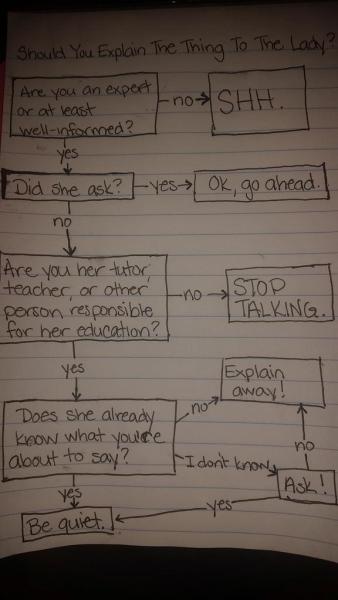 Should You Explain The Thing To The Lady?
Are you an expert
or at least
well-informed?
no
SHH.
yes
Did she ask?
yes
Ok, go ahead.
no
Are you her tutor,
teacher, or other
person responsible
for her education?
no
STOP
TALKING.
yes
Explain
away!
Does she already
know what you're
about to say?
no
I don't know
no
Ask!
yes
yes
Be quiet.